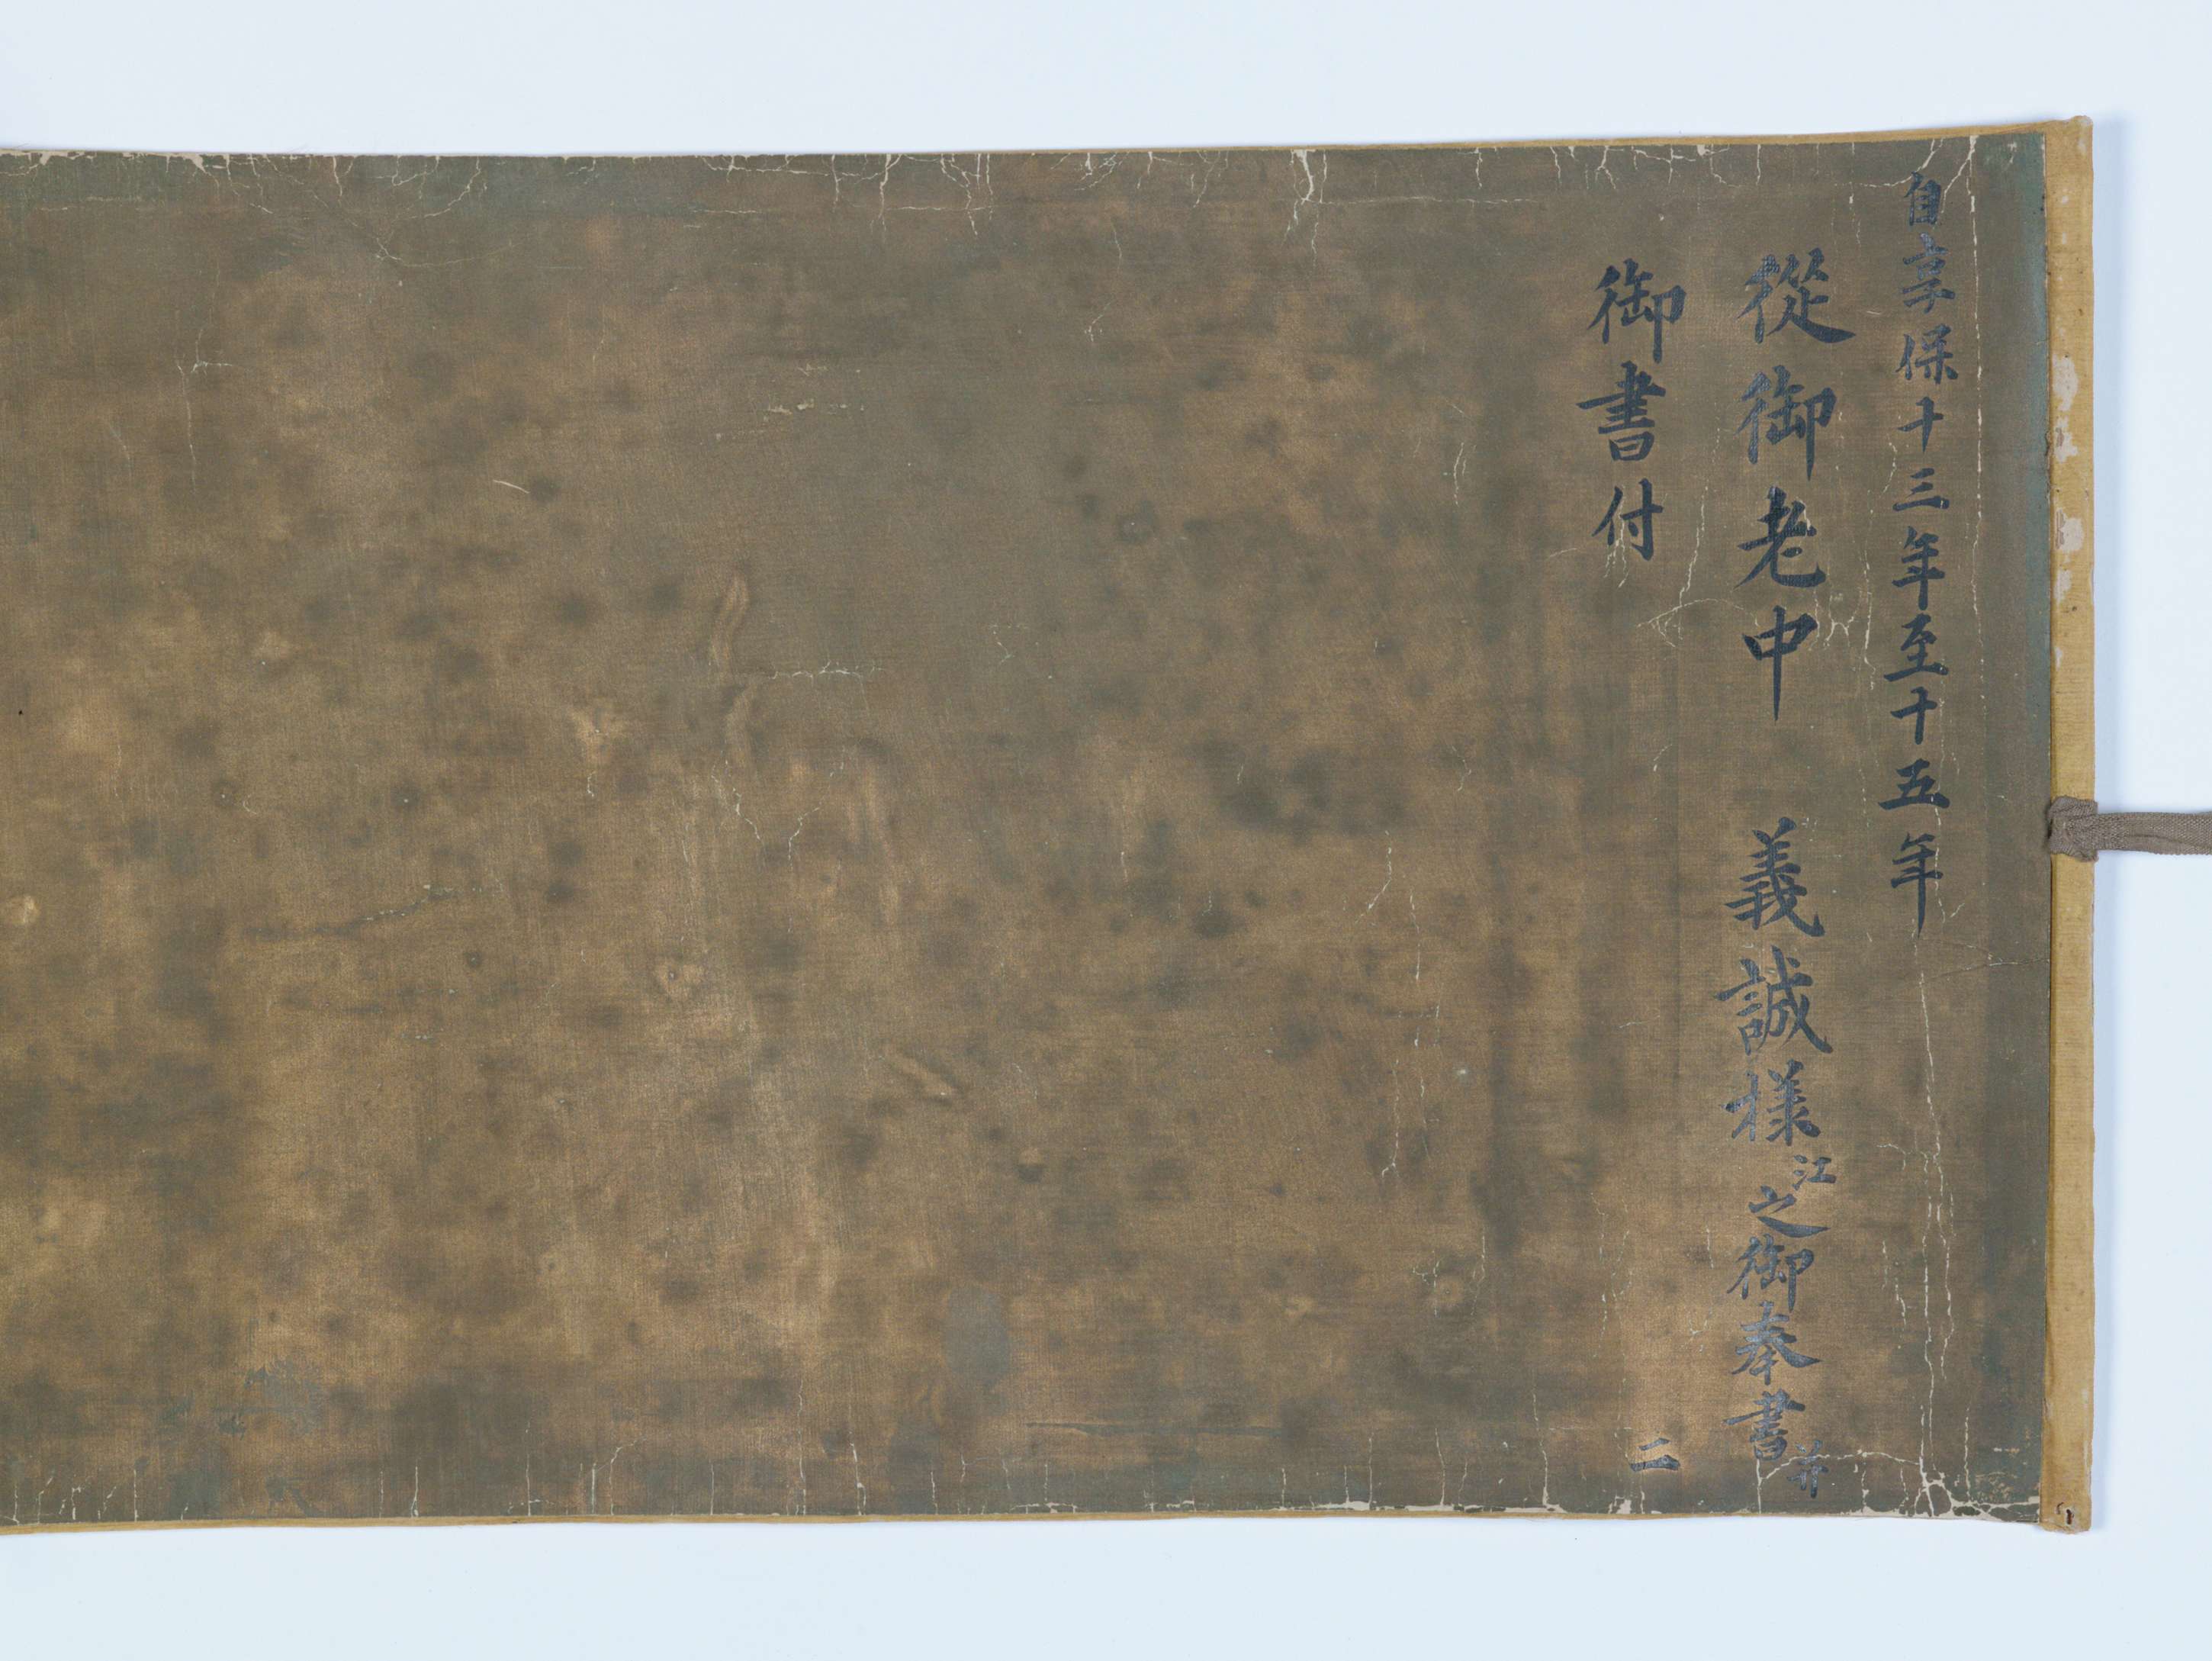 自享保十三年至十五年
從御老中 義誠様江之御奉書并
御書付 二